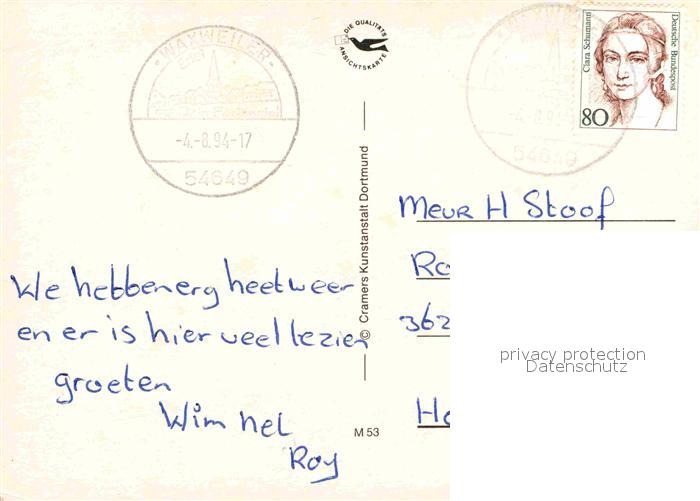 WAXWEILER
-4.-8.94-17
54649
DIE QUALITÄTS
ANSICHTSKARTE
54649
Clara Schumann
Deutsche Bundespost
80
© Cramers Kunstanstalt Dortmund
M 53
Meur H Stoof
Ro
362
Ho
We hebben erg heet weer
en er is hier veel te zien
groeten
Wim Nel
Roy
privacy protection
Datenschutz